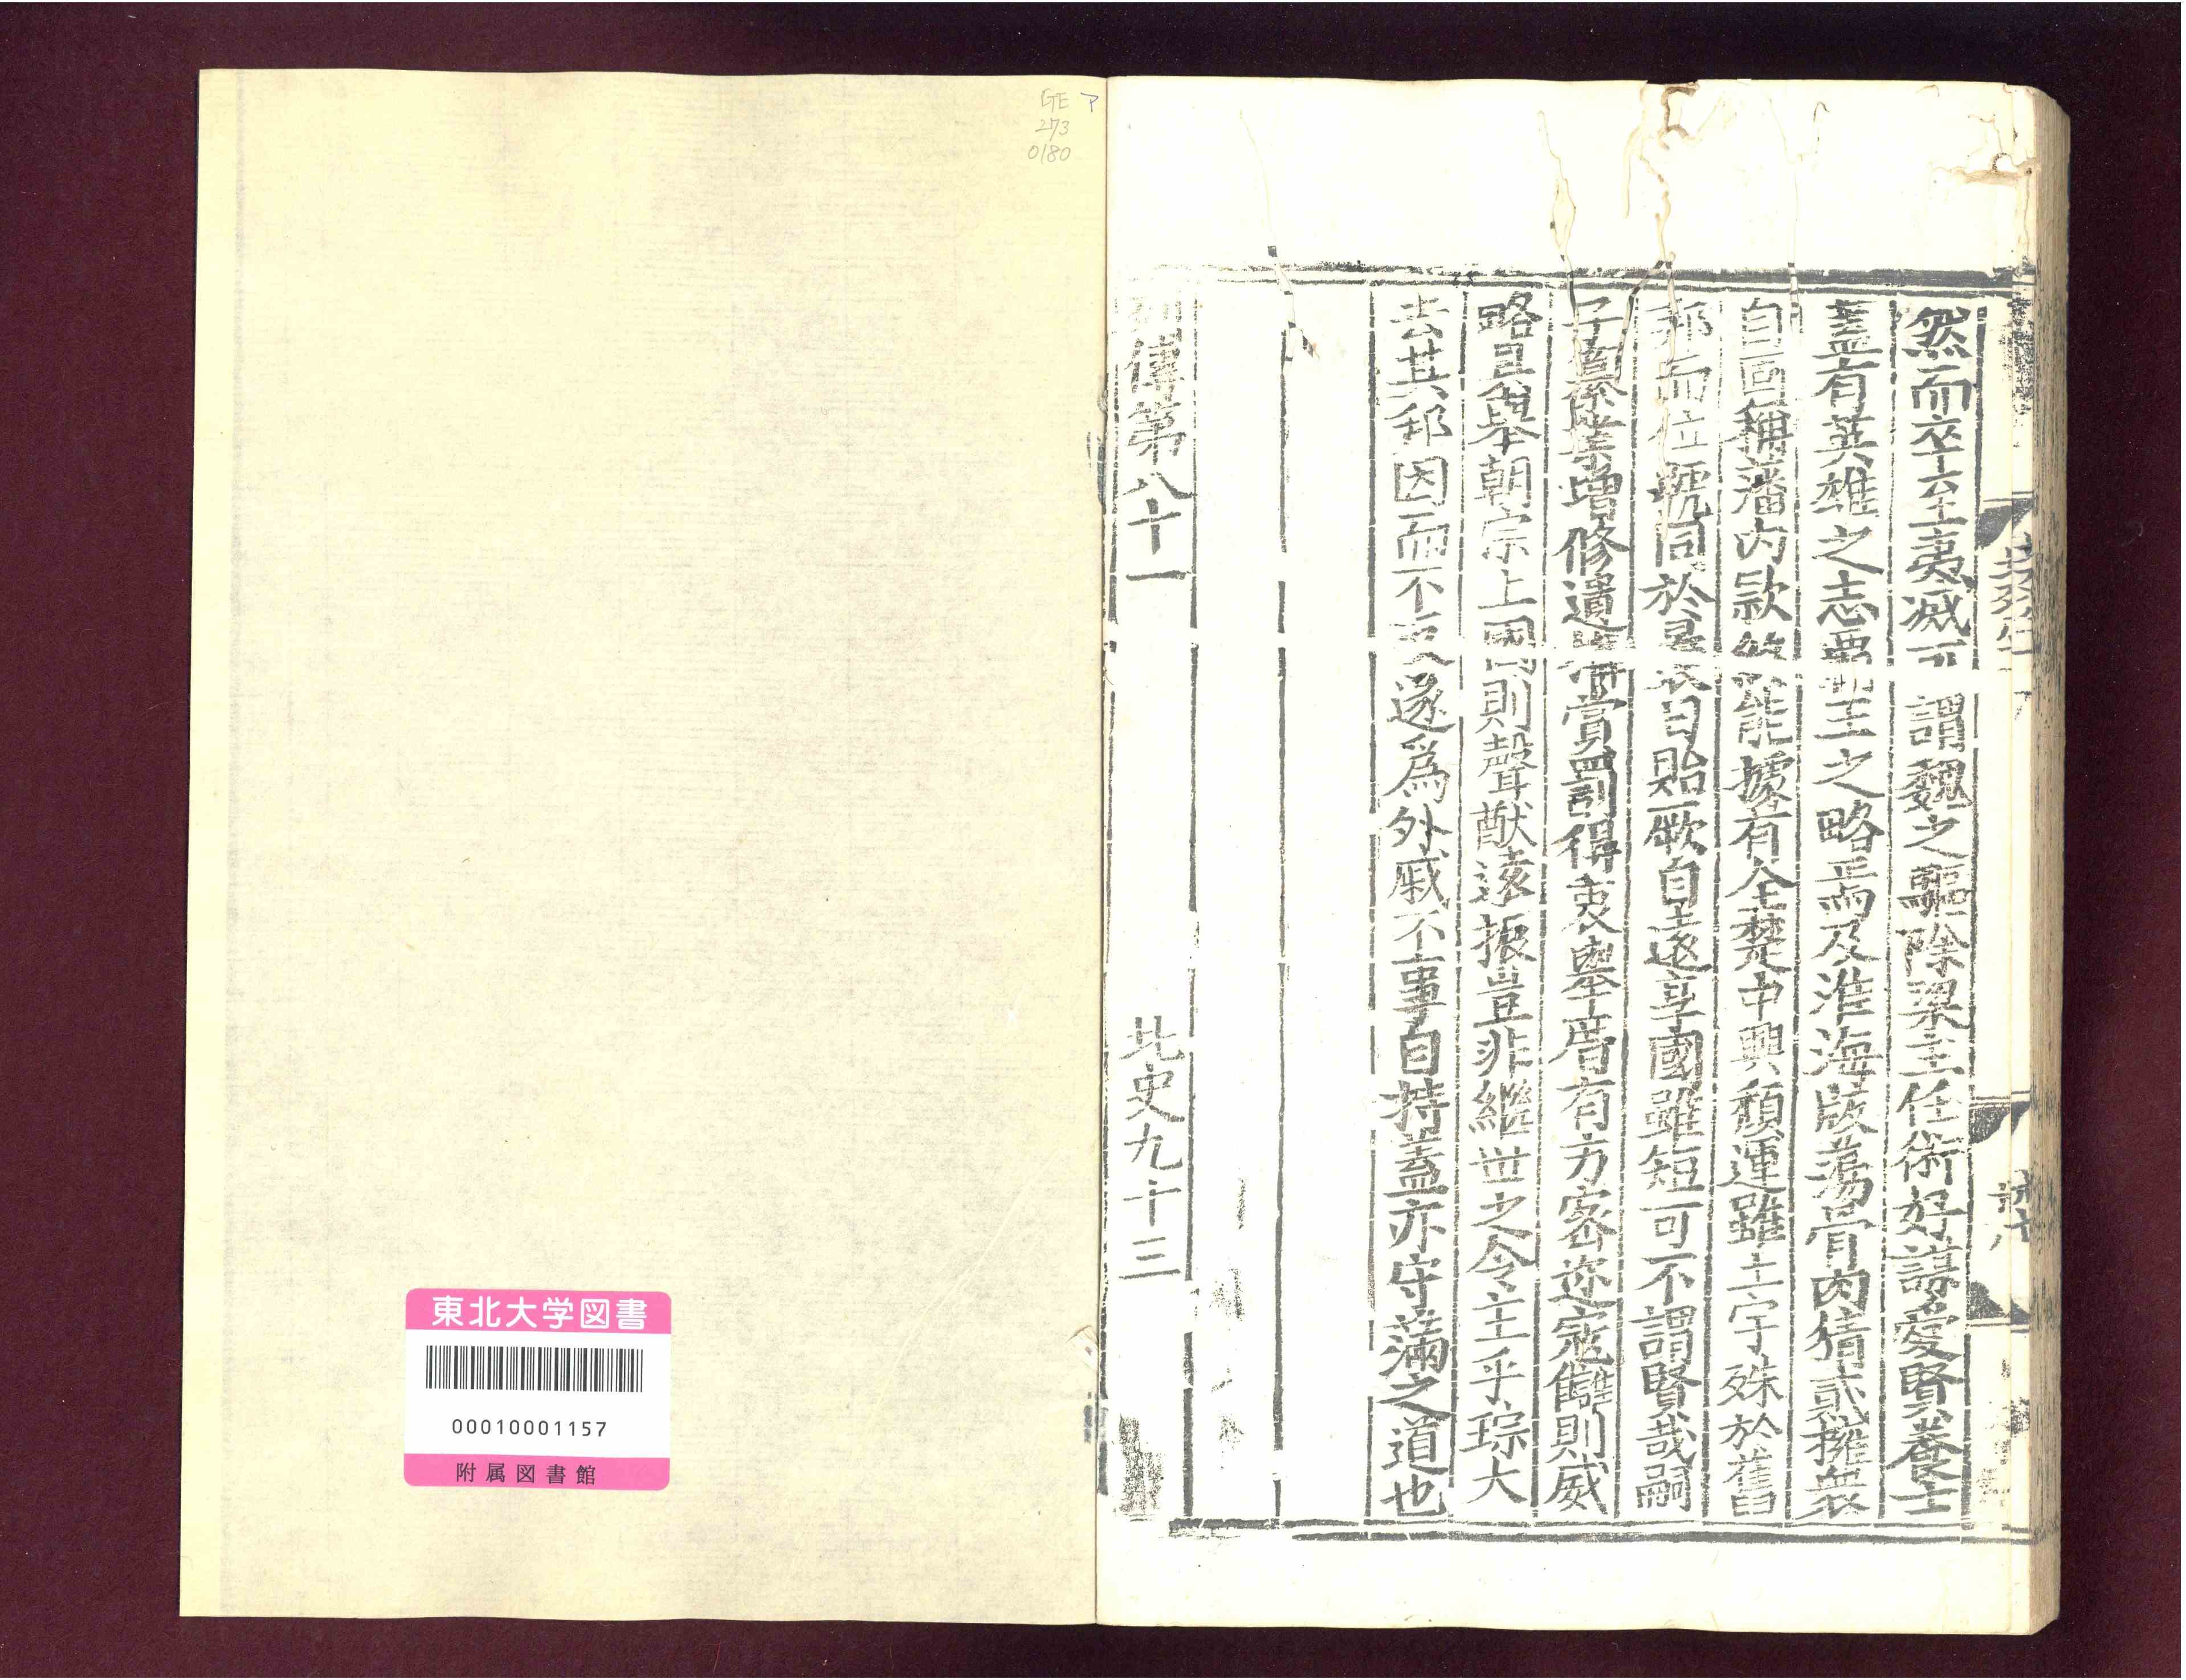 然而卒至夷滅可謂魏之驅除梁主任術好謀愛賢養士
蓋有英雄之志霸王之略焉及淮海版蕩骨肉猜貳擁衆
自固稱藩内款終能據有全楚中興頹運雖土宇殊於舊
邦而位號同於曩日貽厥自遠享國雖短可不謂賢哉嗣
子纂業增修遺 賞罰得衷舉厝有方密邇寇讎則威
略已舉朝宗上國則聲猷遠振豈非繼世之令主乎琮大
去其邦因而不反遂爲外戚不事自持蓋亦守滿之道也
列傳第八十一 北史九十三
GE ア
273
0180
東北大学図書
00010001157
附属図書館